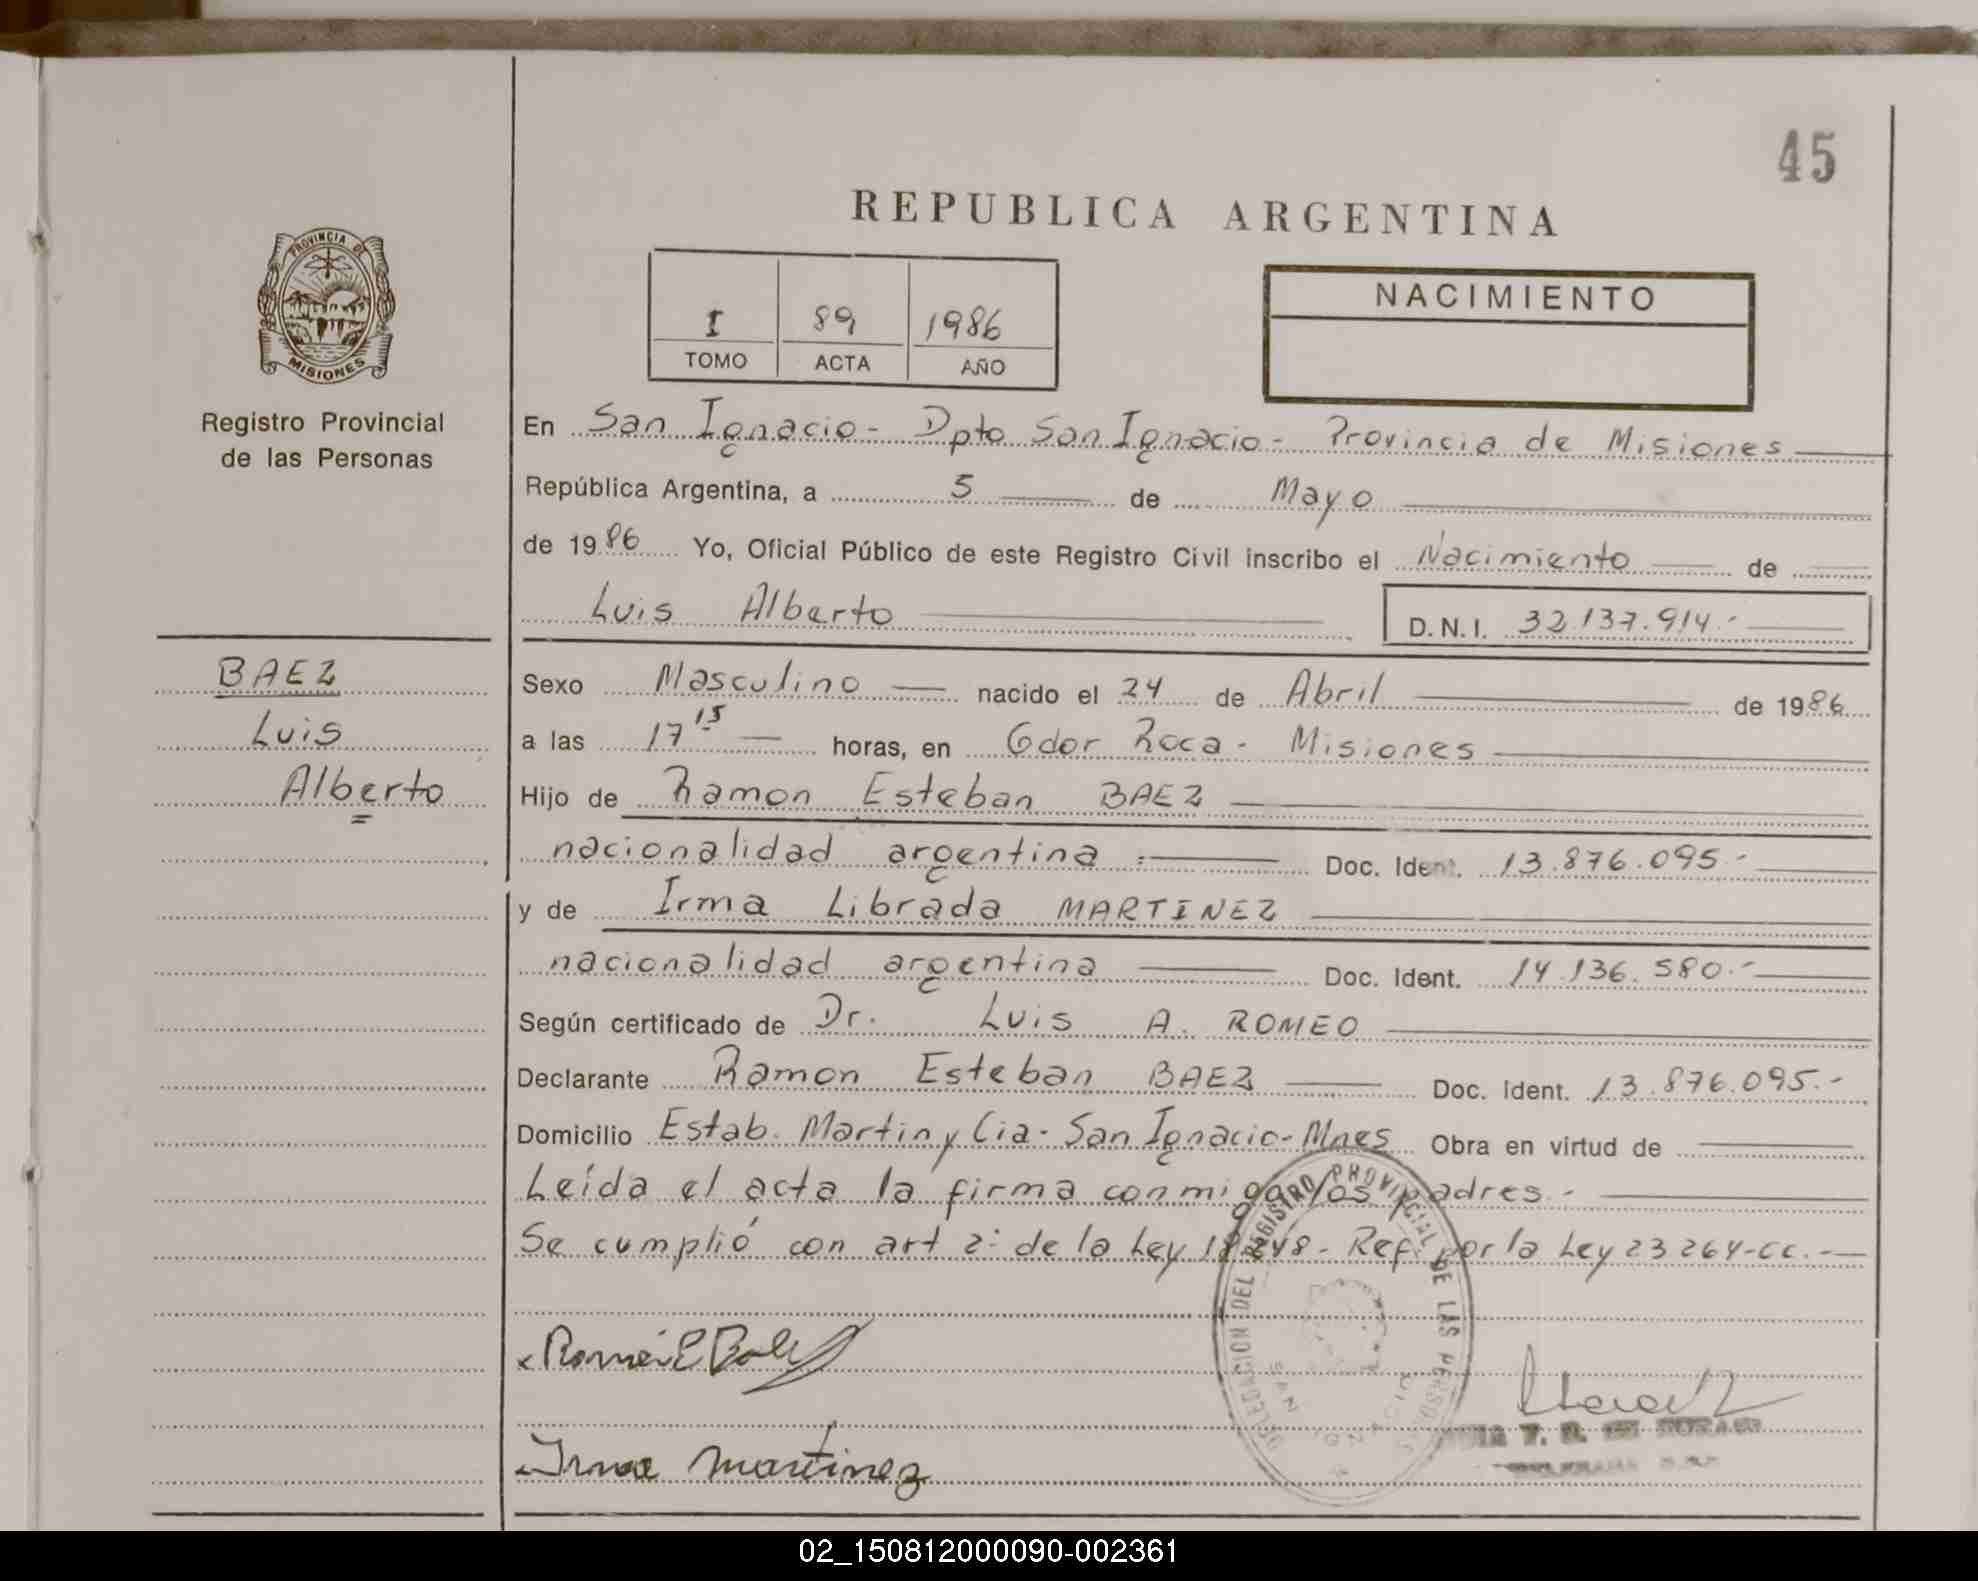 45
REPUBLICA ARGENTINA
PROVINCIA DE
MISIONES
Registro Provincial
de las Personas
I 89 1986
TOMO ACTA AÑO
NACIMIENTO
En San Ignacio - Dpto San Ignacio - Provincia de Misiones
República Argentina, a 5 de Mayo
de 1986 Yo, Oficial Público de este Registro Civil inscribo el Nacimiento de
Luis Alberto D.N.I. 32.137.914.-
BAEZ
Luis
Alberto
Sexo Masculino nacido el 24 de Abril de 1986
a las 17 15 horas, en Gdor Roca - Misiones
Hijo de Ramon Esteban BAEZ
nacionalidad argentina Doc. Ident. 13.876.095.-
y de Irma Librada MARTINEZ
nacionalidad argentina Doc. Ident. 14.136.580.-
Según certificado de Dr. Luis A. ROMEO
Declarante Ramon Esteban BAEZ Doc. Ident. 13.876.095.-
Domicilio Estab. Martin y Cia - San Ignacio - Mnes Obra en virtud de
Leída el acta la firma conmigo los padres.-
Se cumplió con art 2: de la Ley 18248 - Ref. por la Ley 23264-cc.-
DELEGACION DEL REGISTRO PROVINCIAL DE LAS PERSONAS
SAN IGNACIO
Irma Martinez
02_150812000090-002361